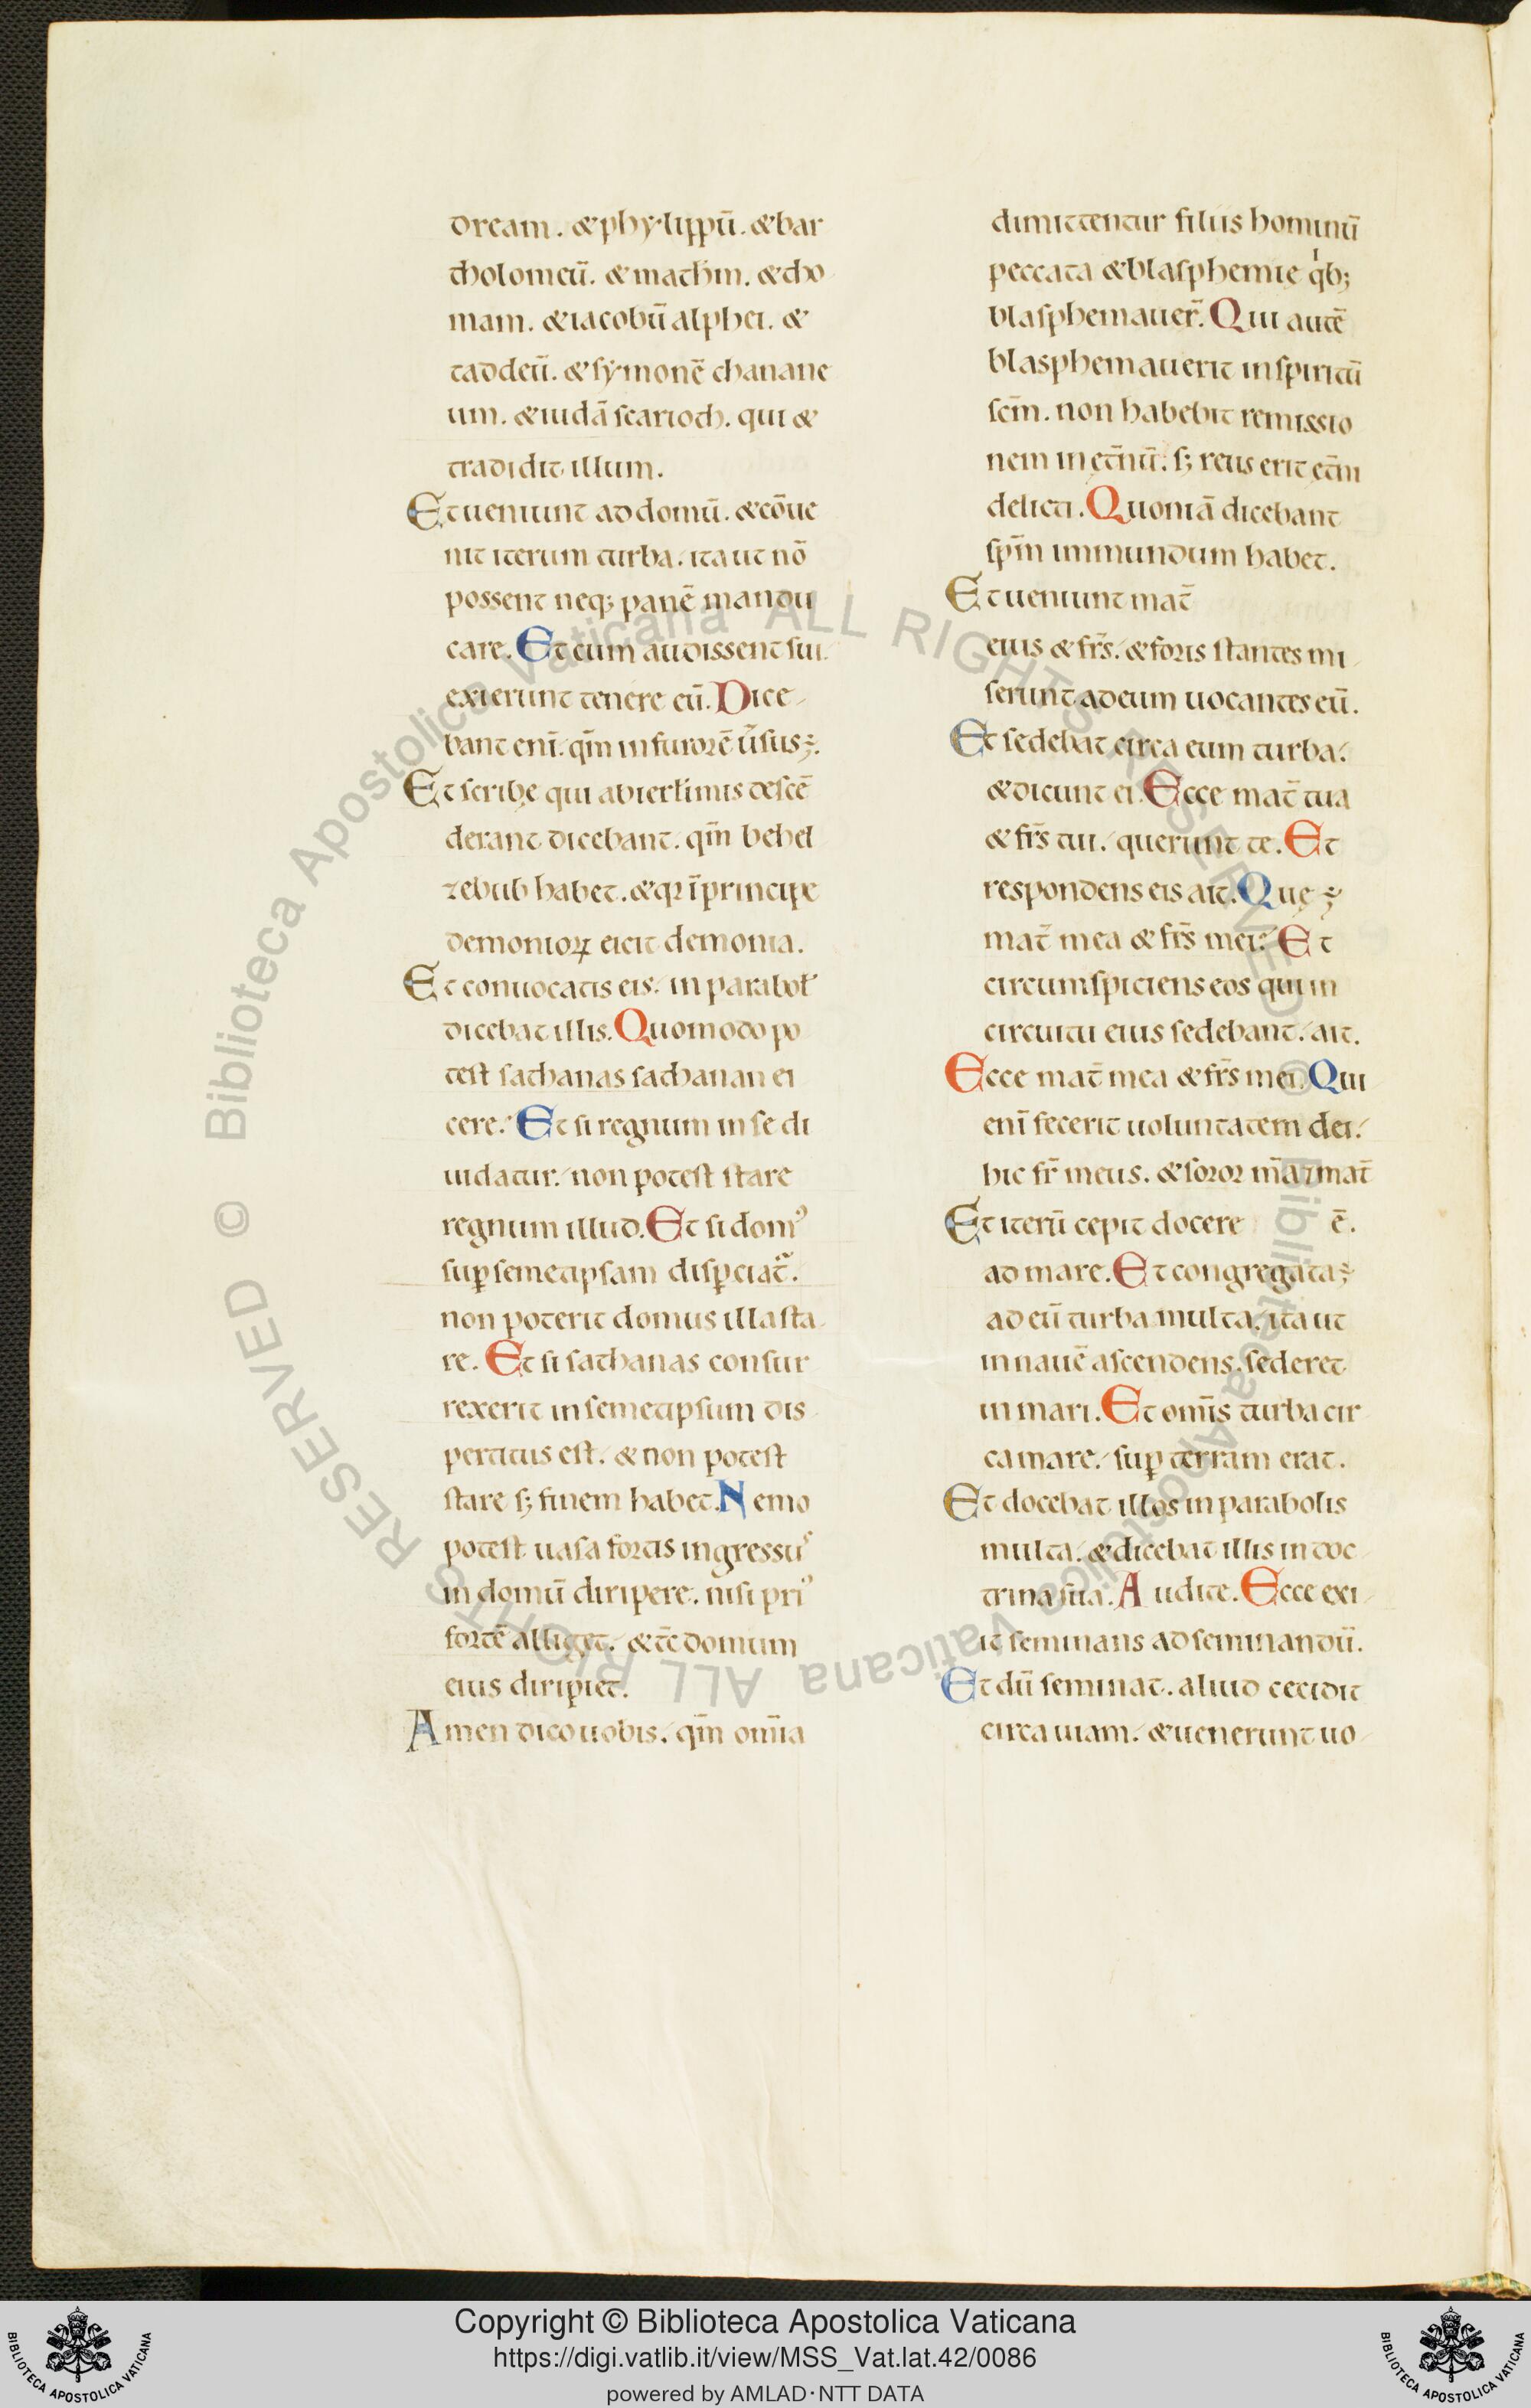 dream. & phylippū. & bar
tholomeū. & mathm̄. & tho
mam. & iacobū alphei. &
taddeū. & symonē chanane
um. & iudā scarioth. qui &
tradidit illum.
Et ueniunt ad domū. & cōue
nit iterum turba. ita ut nō
possent neq; panē mandu
care. Et cum audissent sui.
exierunt tenere eū. Dice
bant enī. qm̄ in furorē ūsus ÷.
Et scribe qui ab ierłimis descē
derant dicebant. qm̄ behel
zebub habet. & q2 ī principe
demonioꝝ eicit demonia.
Et conuocatis eis. in parabol̓
dicebat illis. Quomodo po
test sathanas sathanan ei
cere. Et si regnum in se di
uidatur. non potest stare
regnum illud. Et si domꝰ
suꝑ semetipsam disꝑciat̄.
non poterit domus illa sta
re. Et si sathanas consur
rexerit in semetipsum dis
pertitus est. & non potest
stare s; finem habet. Nemo
potest uasa fortis ingressuˢ
in domū diripere. nisi priꝰ
fortē alliget. & tc̄ domum
eius diripiet.
Amen dico uobis. qm̄ om̄ia
dimittentur filiis hominū
peccata & blasphemie qͥb;
blasphemauer̄. Qui autē
blasphemauerit in spiritū
scm̄. non habebit remissio
nem in et̄nū. s; reus erit et̄ni
delicti. Quoniā dicebant
spm̄ immundum habet.
Et ueniunt mat̄
eius & fr̄s. & foris stantes mi
serunt ad eum uocantes eū.
Et sedebat circa eum turba.
& dicunt ei. Ecce mat̄ tua
& fr̄s tui. querunt te. Et
respondens eis ait. Que ÷
mat̄ mea & fr̄s mei. Et
circumspiciens eos qui in
circuitu eius sedebant. ait.
Ecce mat̄ mea & fr̄s mei. Qui
enī fecerit uoluntatem dei.
hic fr̄ meus. & soror m̄a 7 mat̄
Et iterū cepit docere ē.
ad mare. Et congregata ÷
ad eū turba multa. ita ut
in nauē ascendens. sederet
in mari. Et omīs turba cir
ca mare. suꝑ terram erat.
Et docebat illos in parabolis
multa. & dicebat illis in doc
trina sua. Audite. Ecce exi
it seminans ad seminandū.
Et dū seminat. aliud cecidit
circa uiam. & uenerunt uo
Biblioteca Apostolica Vaticana ALL RIGHTS RESERVED © Biblioteca Apostolica Vaticana ALL RIGHTS RESERVED ©
Copyright © Biblioteca Apostolica Vaticana
https://digi.vatlib.it/view/MSS_Vat.lat.42/0086
powered by AMLAD·NTT DATA
BIBLIOTECA APOSTOLICA VATICANA
BIBLIOTECA APOSTOLICA VATICANA